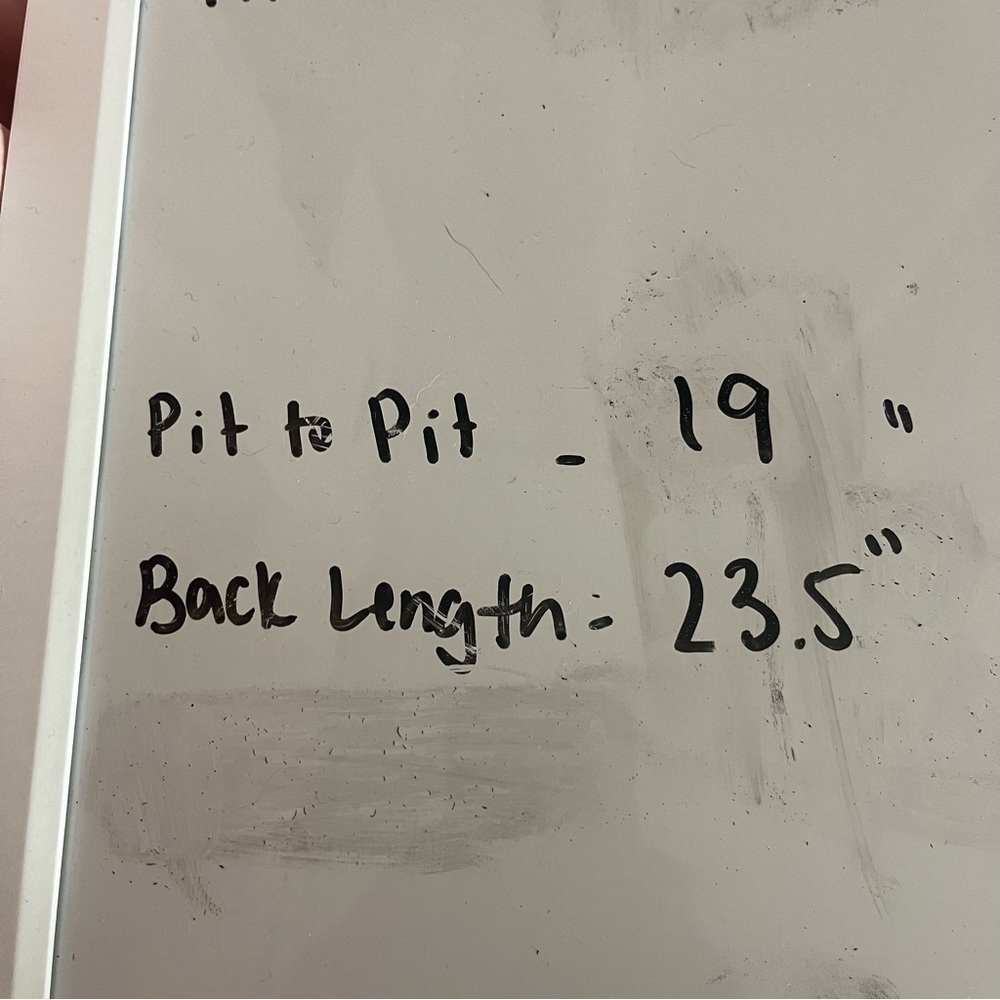 Pit to Pit - 19 "
Back Length = 23.5"